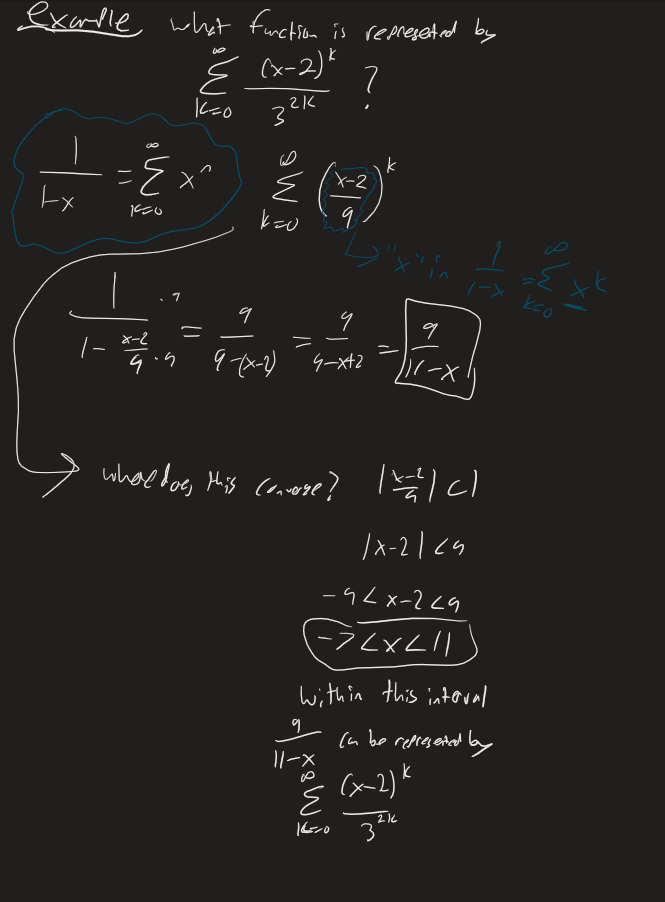 Example what function is represented by
∞ Σ k=0 (x-2)^k / 3^2k ?
1 / 1-x = ∞ Σ k=0 x^n
∞ Σ k=0 (x-2 / 9)^k
"x" in 1 / 1-x = ∞ Σ k=0 x^k
1 / 1 - x-2 / 9 · 9 · 9 = 9 / 9-(x-2) = 9 / 9-x+2 = 9 / 11-x
where does this converge? |x-2 / 9| < 1
|x-2| < 9
-9 < x-2 < 9
-7 < x < 11
Within this interval
9 / 11-x can be represented by
∞ Σ k=0 (x-2)^k / 3^2k